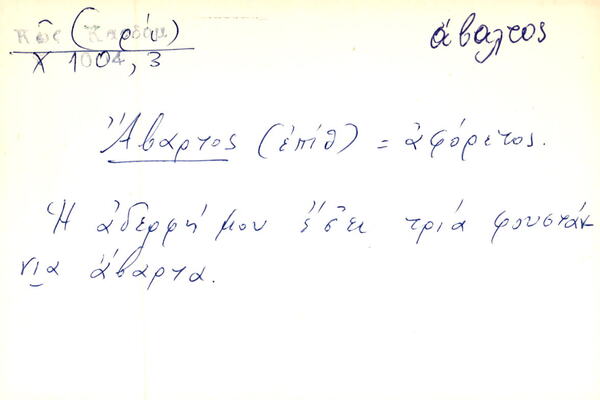 Κῶς (Καρδάμ)
Χ 1004, 3
άβαλτος
Ἄβαρτος (ἐπίθ) = ἀφόρετος.
Ἡ ἀδερφή μου ἔσ̌ει τρία φουστάν
νι̮α ἄβαρτα.